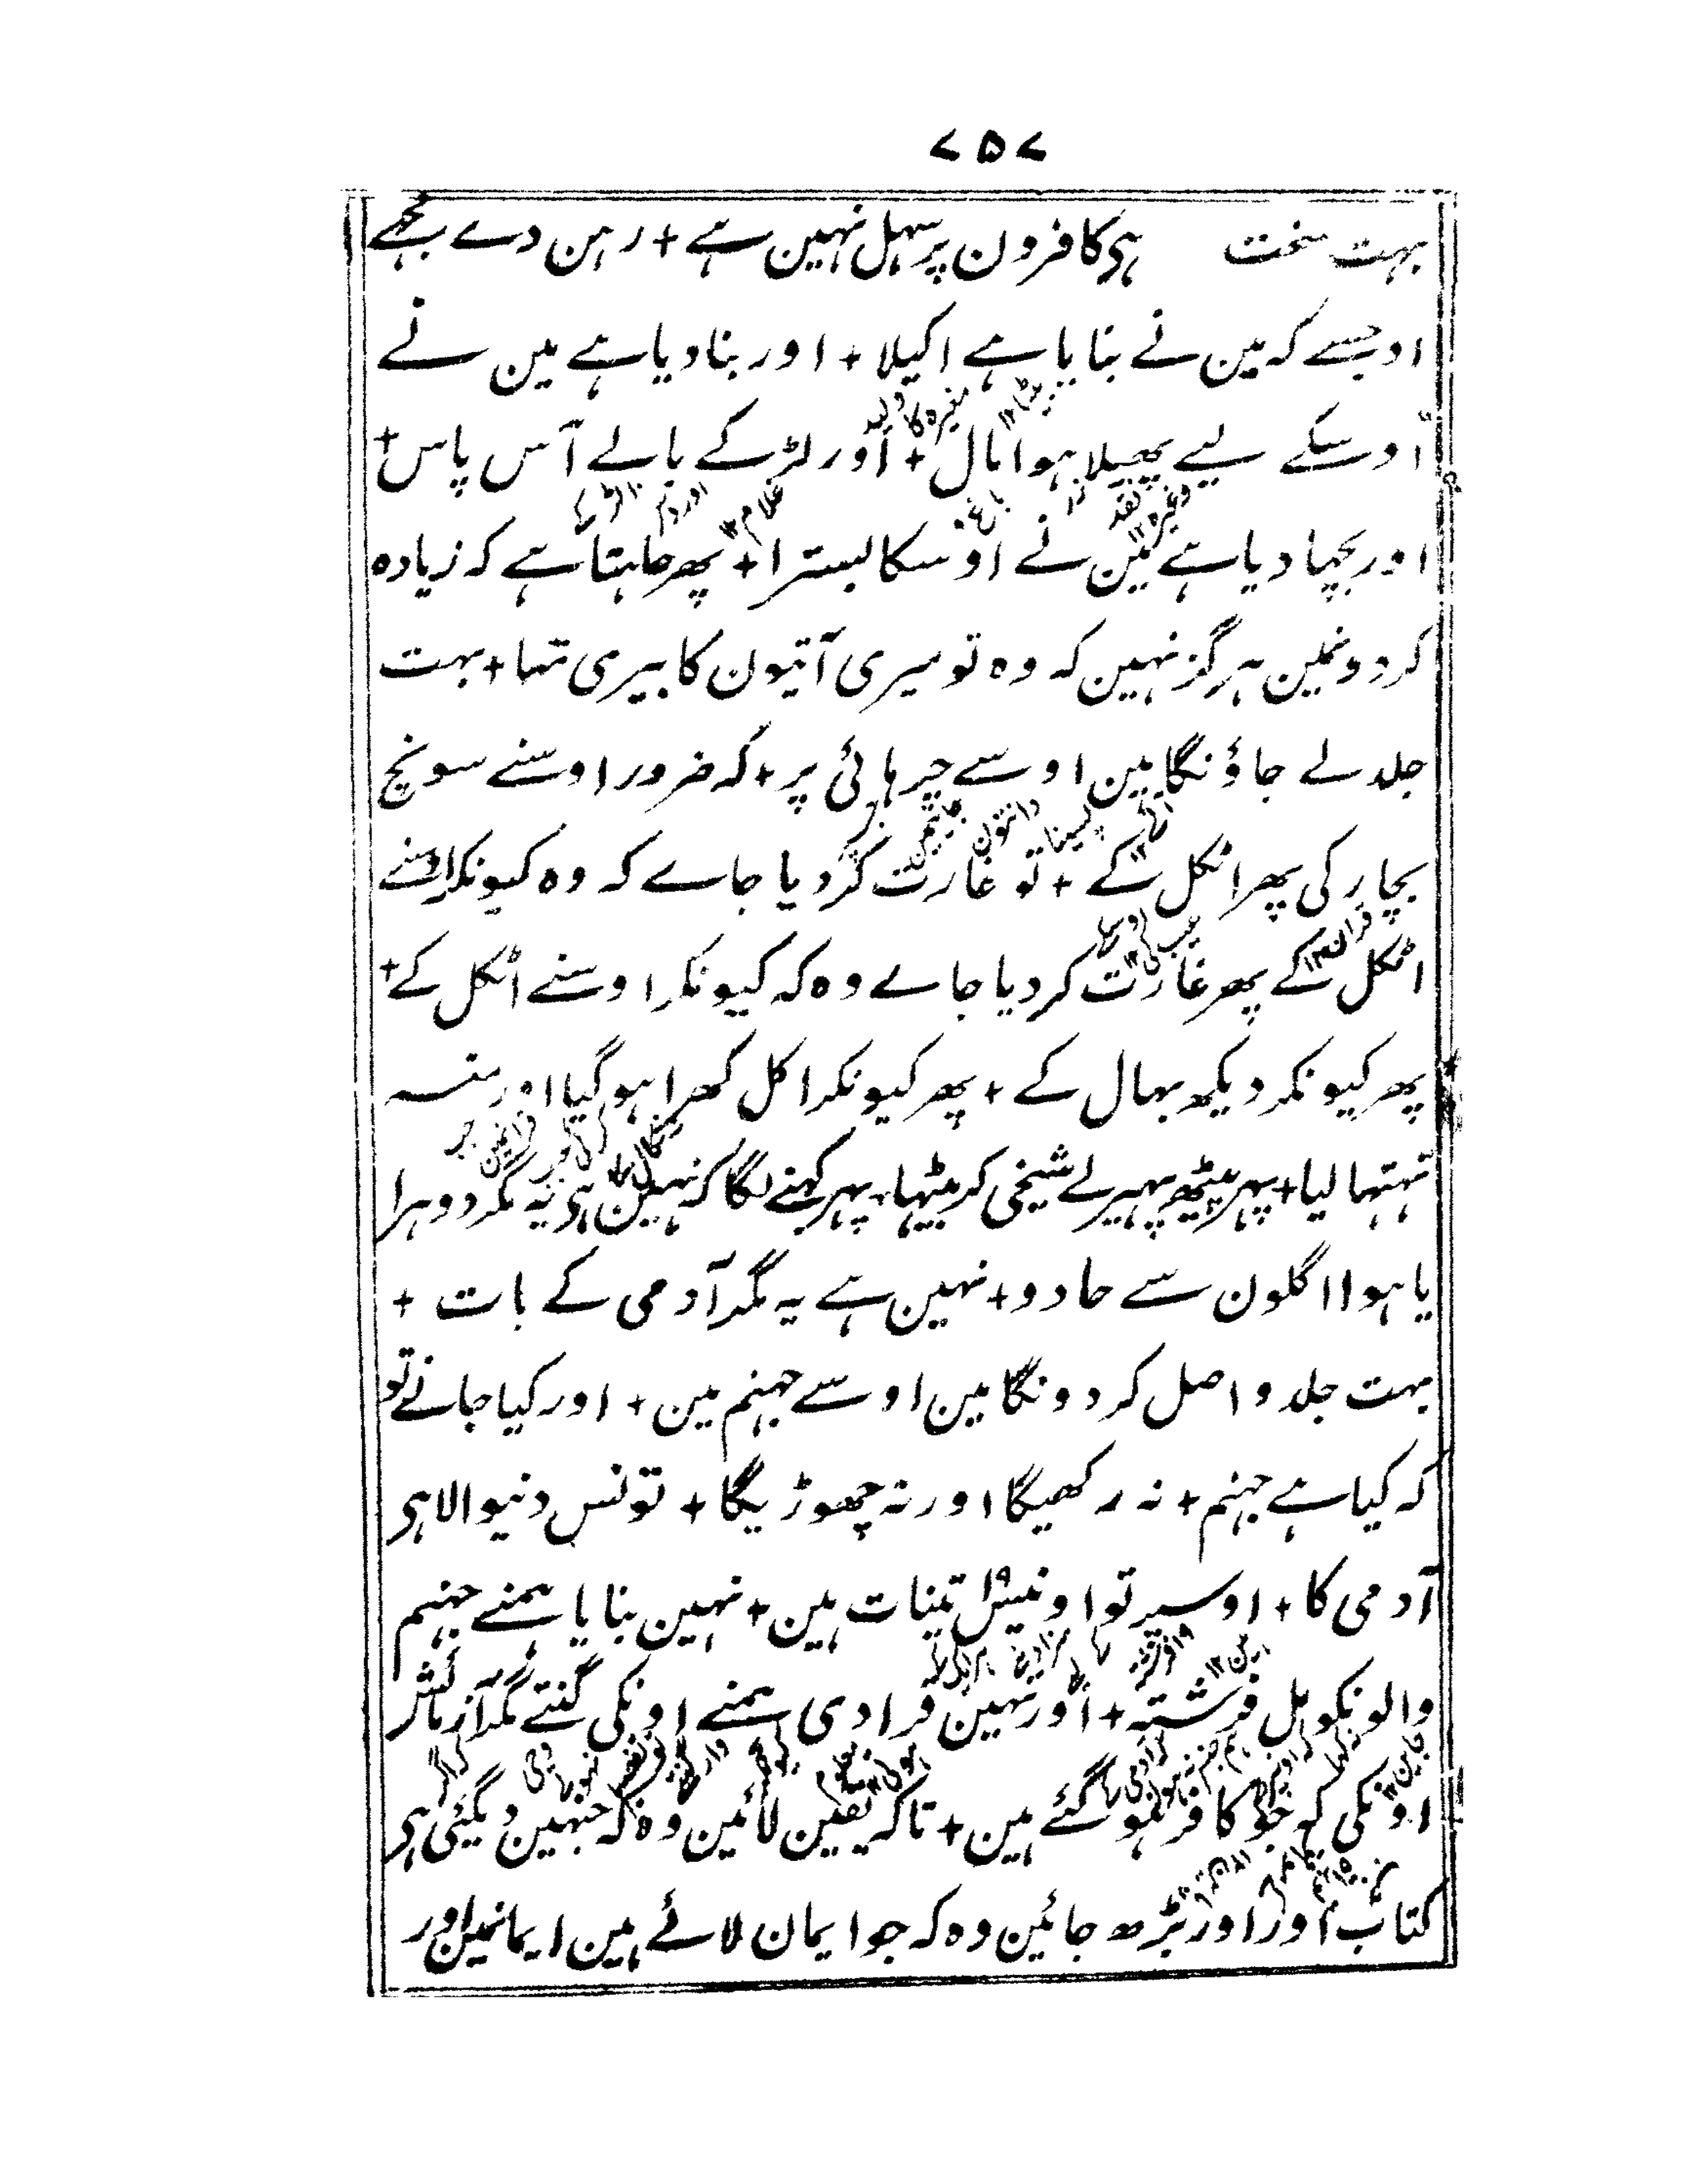 ۷۵۷
بہت سخت ہی کافرون پر سہل نہین ہے + رہن دے مجھے
اوجسے کہ مین نے بنایا ہے اکیلا + اور بنادیا ہے مین نے
اوسکے لیے پھیلا ہوا مال + اور لڑکے بالے آس پاس +
اور بچھا دیا ہے مین نے اوسکا بسترا + پھر چاہتا ہے کہ زیادہ
کردونمین ہرگز نہین کہ وہ تو میری آتیون کا بیری تہا + بہت
جلد لے جاؤنگا مین اوسے چرہائی پر + کہ ضرور اوسنے سونچ
بچار کی پھر اٹکل کے + تو غارت کردیا جاے کہ وہ کیونکر اوسنے
اٹکل کے پھر غارت کردیا جاے وہ کہ کیونکر اوسنے اٹکل کے +
پھر کیونکر دیکھ بہال کے + پھر کیونکر اکل کھرا ہوگیا اور منہ
تہتہا لیا + پہر پیٹھ پہیر لے شیخی کر بیٹہا + پہر کہنے لگا کہ نہین ہی یہ مگر دوہرا
یا ہوا اگلون سے جادو + نہین ہے یہ مگر آدمی کے بات +
بہت جلد واصل کردونگا مین اوسے جہنم مین + اور کیا جانے تو
کہ کیا ہے جہنم + نہ رکھیگا اور نہ چھوڑیگا + تونس دنیوالا ہی
آدمی کا + اوسپر تو اونیس۱۹ تینات ہین + نہین بنایا ہمنے جہنم
والونکو بل فرشتہ + اور نہین قرادی ہمنے اونکی گنتے مگر آزمائش
اونکی کہ جو کافر ہوگئے ہین + تاکہ یقین لائین وہ کہ جنہین دیگئی ہی
کتاب اور اور بڑھ جائین وہ کہ جو ایمان لائے ہین ایمانمین اور